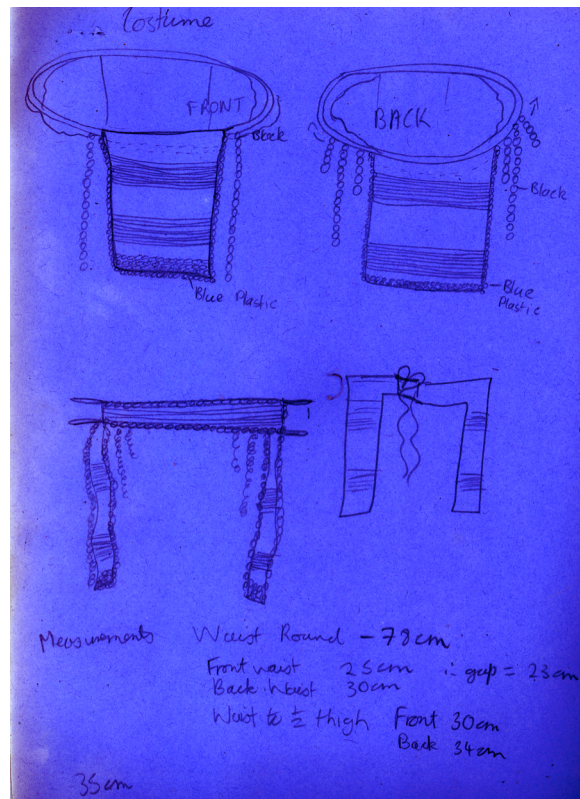 Costume
FRONT
Black
Blue Plastic
BACK
Black
Blue
Plastic
Measurements Waist Round - 78cm
Front waist 25cm ∴ gap = 23cm
Back Waist 30cm
Waist to ½ thigh Front 30cm
Back 34cm
35cm